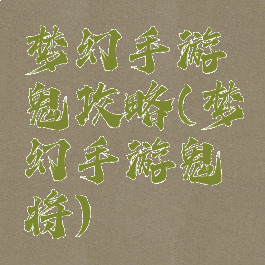 梦幻手游
鬼攻略(梦
幻手游鬼
将)